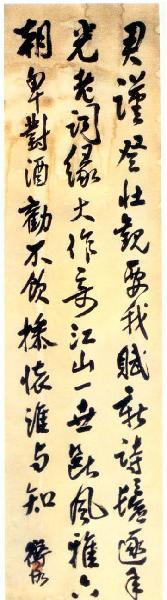 君谨登壯觀要我賦新詩鬢逐年
光老詞緣大作奇江山一世斷風雅六
朝卑對酒勸不飲操懷誰与知